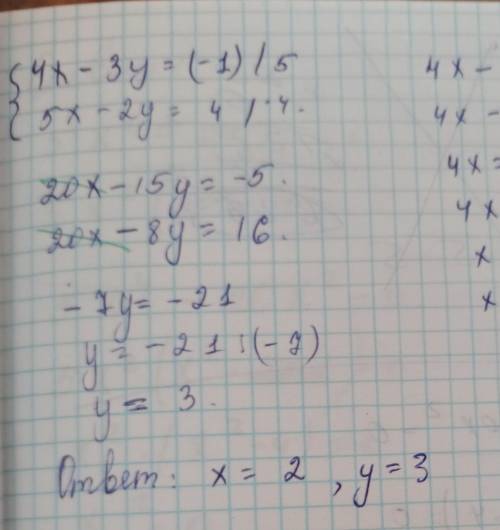 4x - 3y = (-1) | 5
5x - 2y = 4 | · 4.
20x - 15y = -5.
20x - 8y = 16.
- 7y = -21
y = -21 : (-7)
y = 3.
Ответ: x = 2 , y = 3
4x -
4x -
4x =
4x
x
x